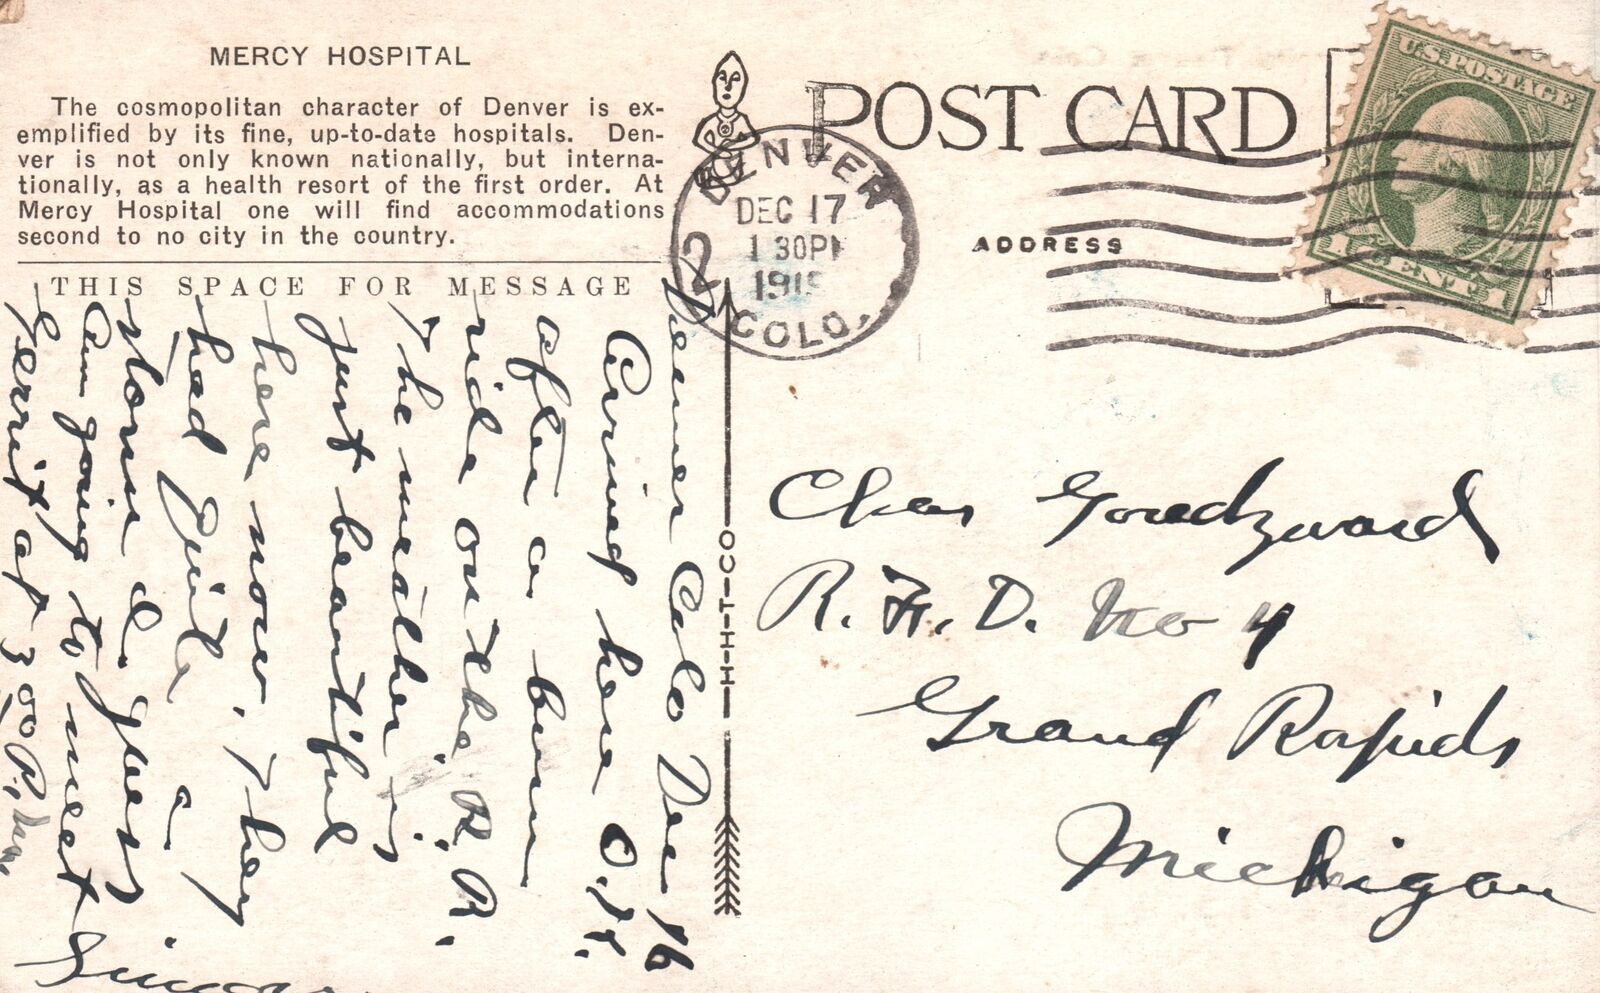 MERCY HOSPITAL
The cosmopolitan character of Denver is ex-
emplified by its fine, up-to-date hospitals. Den-
ver is not only known nationally, but interna-
tionally, as a health resort of the first order. At
Mercy Hospital one will find accommodations
second to no city in the country.
THIS SPACE FOR MESSAGE
Denver Colo Dec 16
Arrived here O.K.
after a
ride on the R.R.
The weather is
just beautiful
here now, They
had quite a
storm I guess
Am going to meet
Gerrit at 3 00 P.M.
H-H-T-CO
POST CARD
DENVER
DEC 17
1 30PM
191
COLO.
2
ADDRESS
U.S. POSTAGE
1 CENT 1
Chas
R. F. D. No 4
Grand Rapids
Michigan